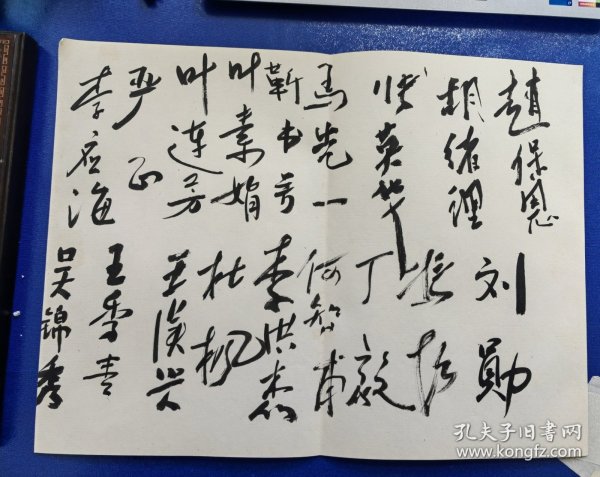 赵保国
胡绪理
张英华
马光一
靳书
叶素娟
叶连芳
严正
李应海
刘勋
张
丁毅
何智甫
李洪杰
杜枫
王汉兴
王秀杰
吴锦秀
孔夫子旧书网
www.kongfz.com